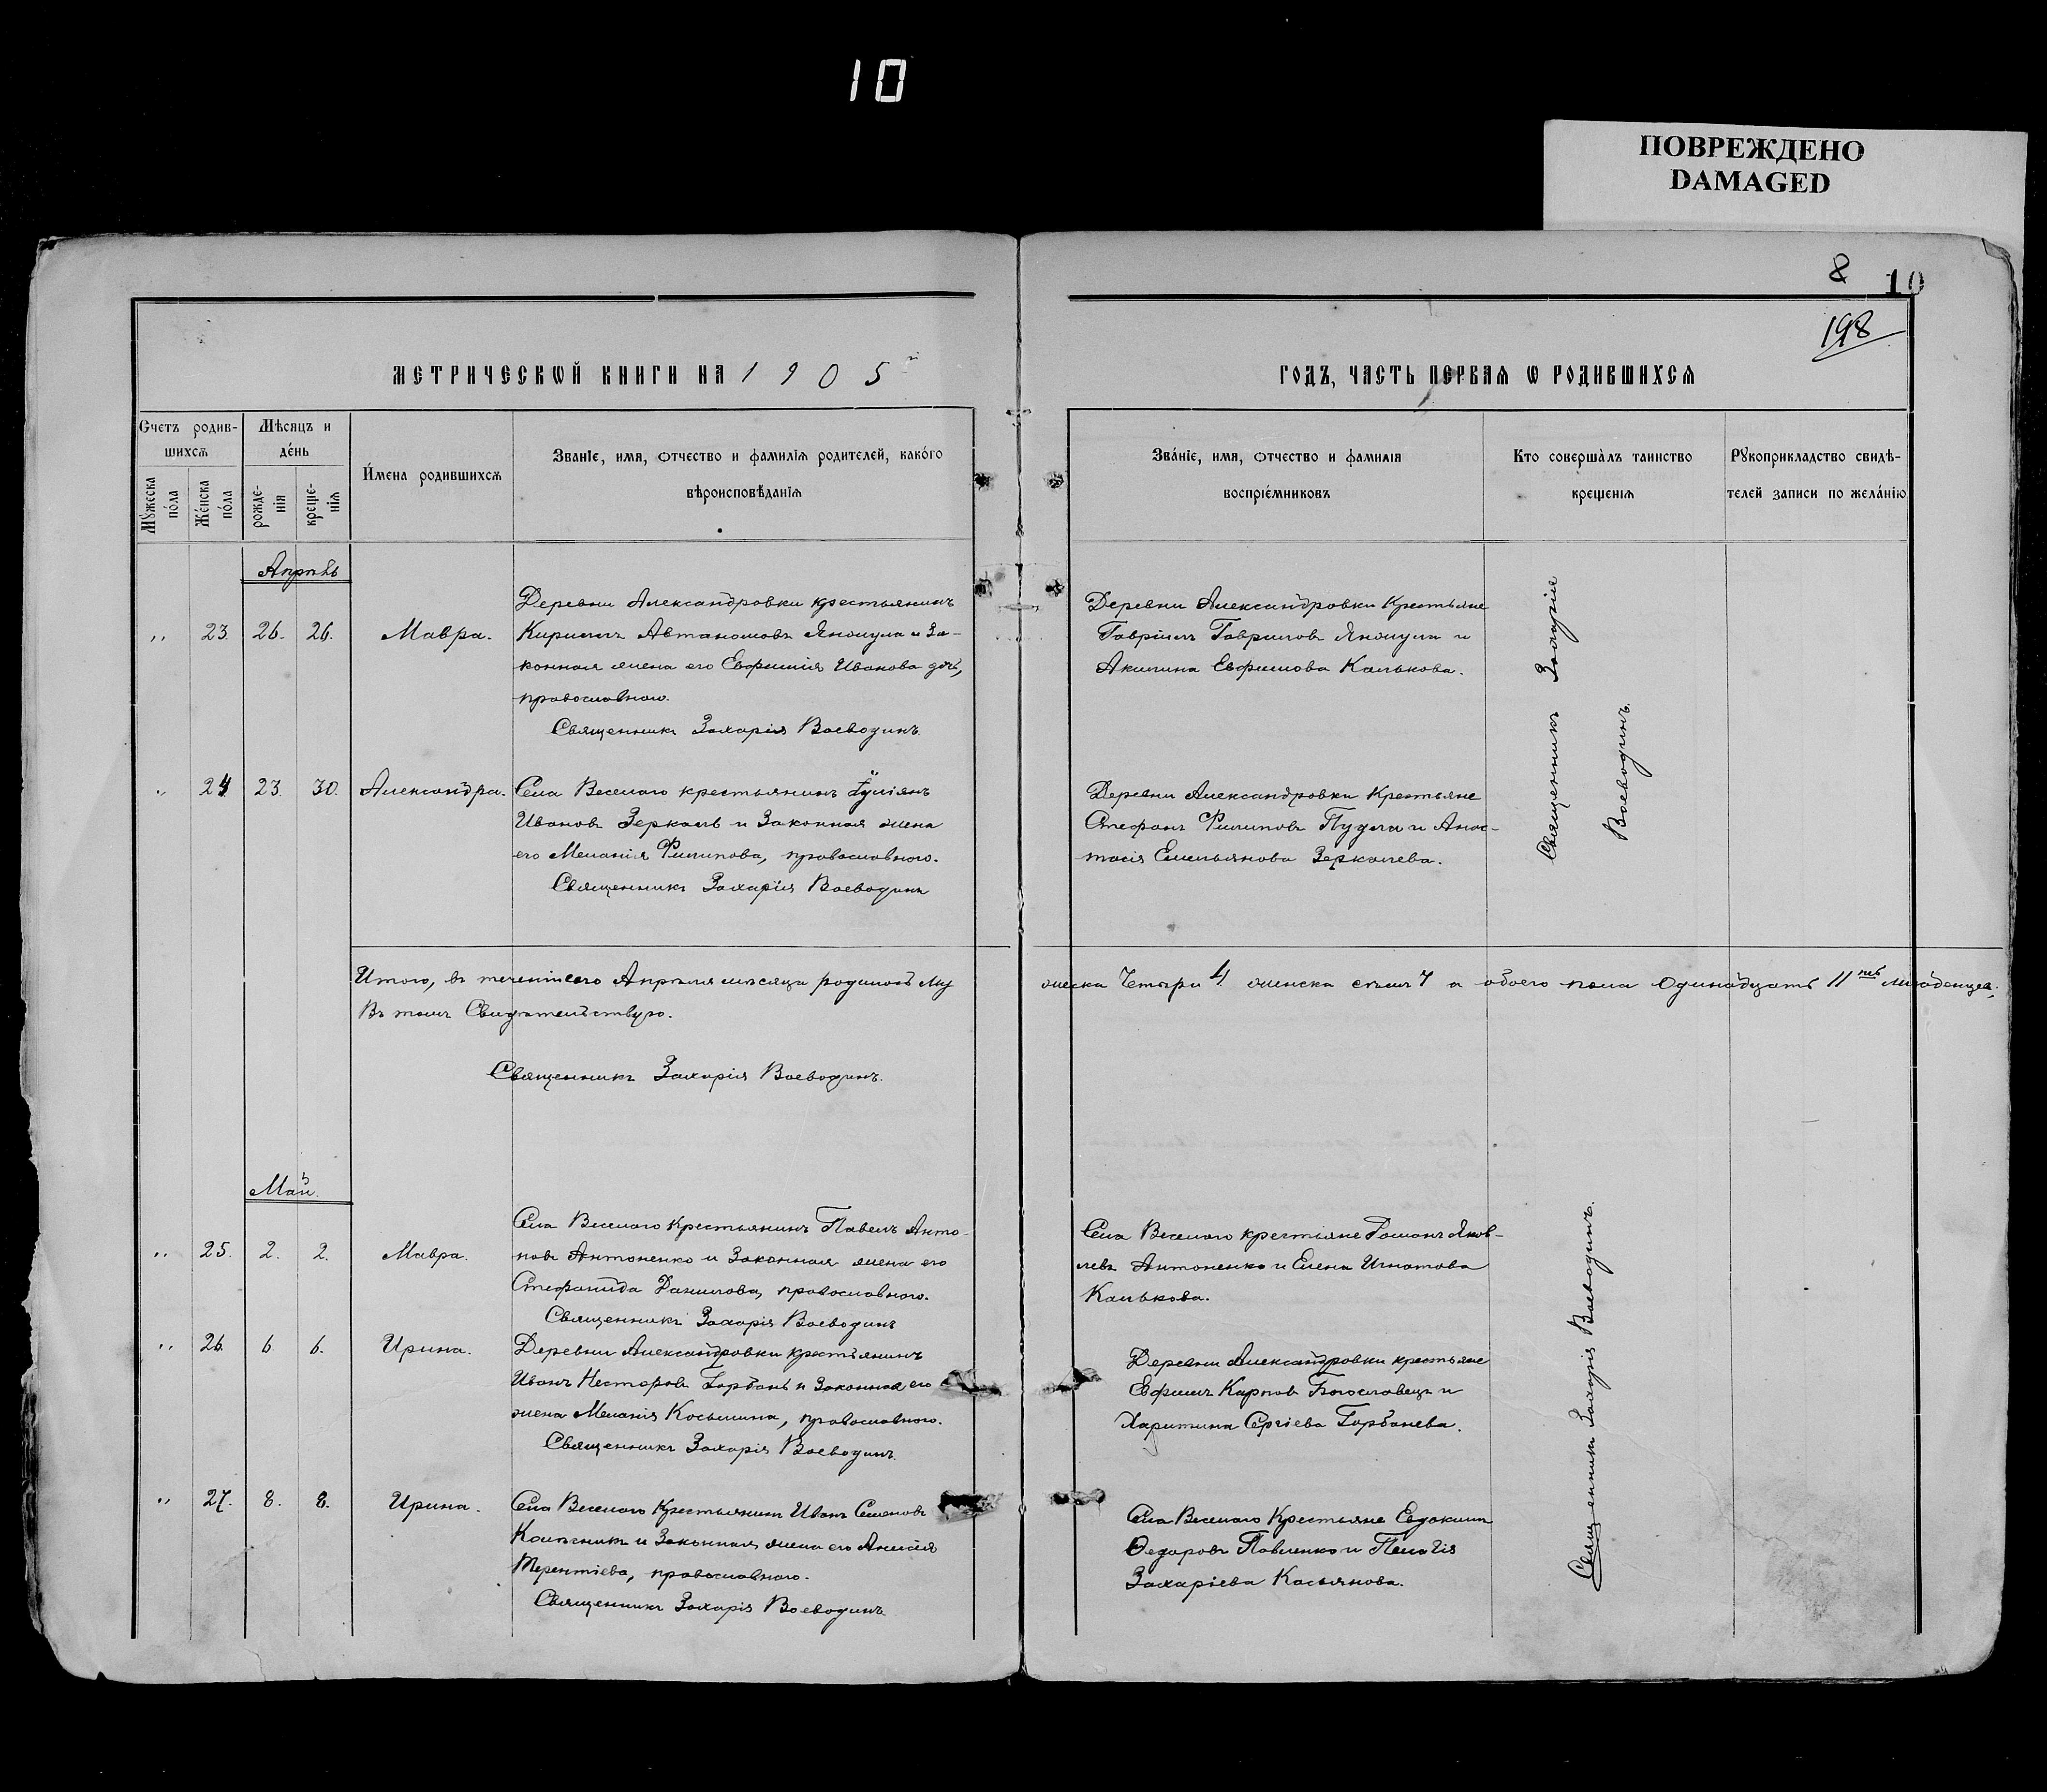 10
ПОВРЕЖДЕНО
DAMAGED
8 10
198
МЕТРИЧЕСКѠЙ КНИГИ НА 1905
ГОДЪ, ЧАСТЬ ПЕРВАѦ Ѡ РОДИВШИХСѦ
Счетъ родив-
шихсѧ
Мѣсяцъ и
де́нь
Мꙋжеска
по́ла
Же́нска
по́ла
рожде-
нія
креще-
нія
И́мена родившихсѧ
Зва́ніе, имя, ѻтчество и фамилія родителей, како́го
вѣроисповѣ́данія
Зва́ніе, имя, ѻтчество и фамилія
воспріе́мниковъ
Кто совершалъ таинство
крещенія
Рꙋкоприкладство свидѣ-
телей записи по жела́нію
Апрѣль
,, 23. 26. 26. Мавра.
Деревни Александровки крестьянинъ
Кириллъ Автономовъ Яномула и за-
конная жена его Евфимія Иванова дочь,
православнаго.
Священникъ Захарія Воеводинъ.
Деревни Александровки Крестьяне
Гавріилъ Гавриловъ Яномула и
Акилина Евфимова Калькова.
Священникъ Захарія
Воеводинъ.
,, 24. 23. 30. Александра.
Села Веселаго крестьянинъ Іуліянъ
Ивановъ Зеркаль и Законная жена
его Меланія Филипова, православнаго.
Священникъ Захарія Воеводинъ
Деревни Александровки Крестьяне
Стефанъ Филиповъ Пудла и Анас-
тасія Емельянова Зеркалева.
Итого, въ теченіи сего Апрѣля мѣсяца родилось му
жеска Четыри 4 женска семь 7 а обоего пола Одинадцать 11 младенцев;
Въ томъ Свидѣтельствую.
Священникъ Захарія Воеводинъ.
Май.
,, 25. 2. 2. Мавра.
Села Веселаго Крестьянинъ Павелъ Анто-
новъ Антоненко и Законная жена его
Стефанида Данилова, православнаго.
Священникъ Захарія Воеводинъ
Села Веселаго крестіяне Романъ Яков-
левъ Антоненко и Елена Игнатова
Калькова.
Священникъ Захарія Воеводинъ.
,, 26. 6. 6. Ирина.
Деревни Александровки крестьянинъ
Иванъ Несторовъ Горбань и Законная его
жена Меланія Косьмина, православнаго.
Священникъ Захарія Воеводинъ.
Деревни Александровки крестьяне
Евфимъ Карповъ Богословецъ и
Харитина Сергіева Горбанева.
,, 27. 8. 8. Ирина.
Села Веселаго Крестьянинъ Иванъ Семеновъ
Колесникъ и Законная жена его Анисія
Терентіева, православнаго.
Священникъ Захарія Воеводинъ
Села Веселаго Крестьяне Евдокимъ
Ѳедоровъ Павленко и Пелагія
Захаріева Касьянова.